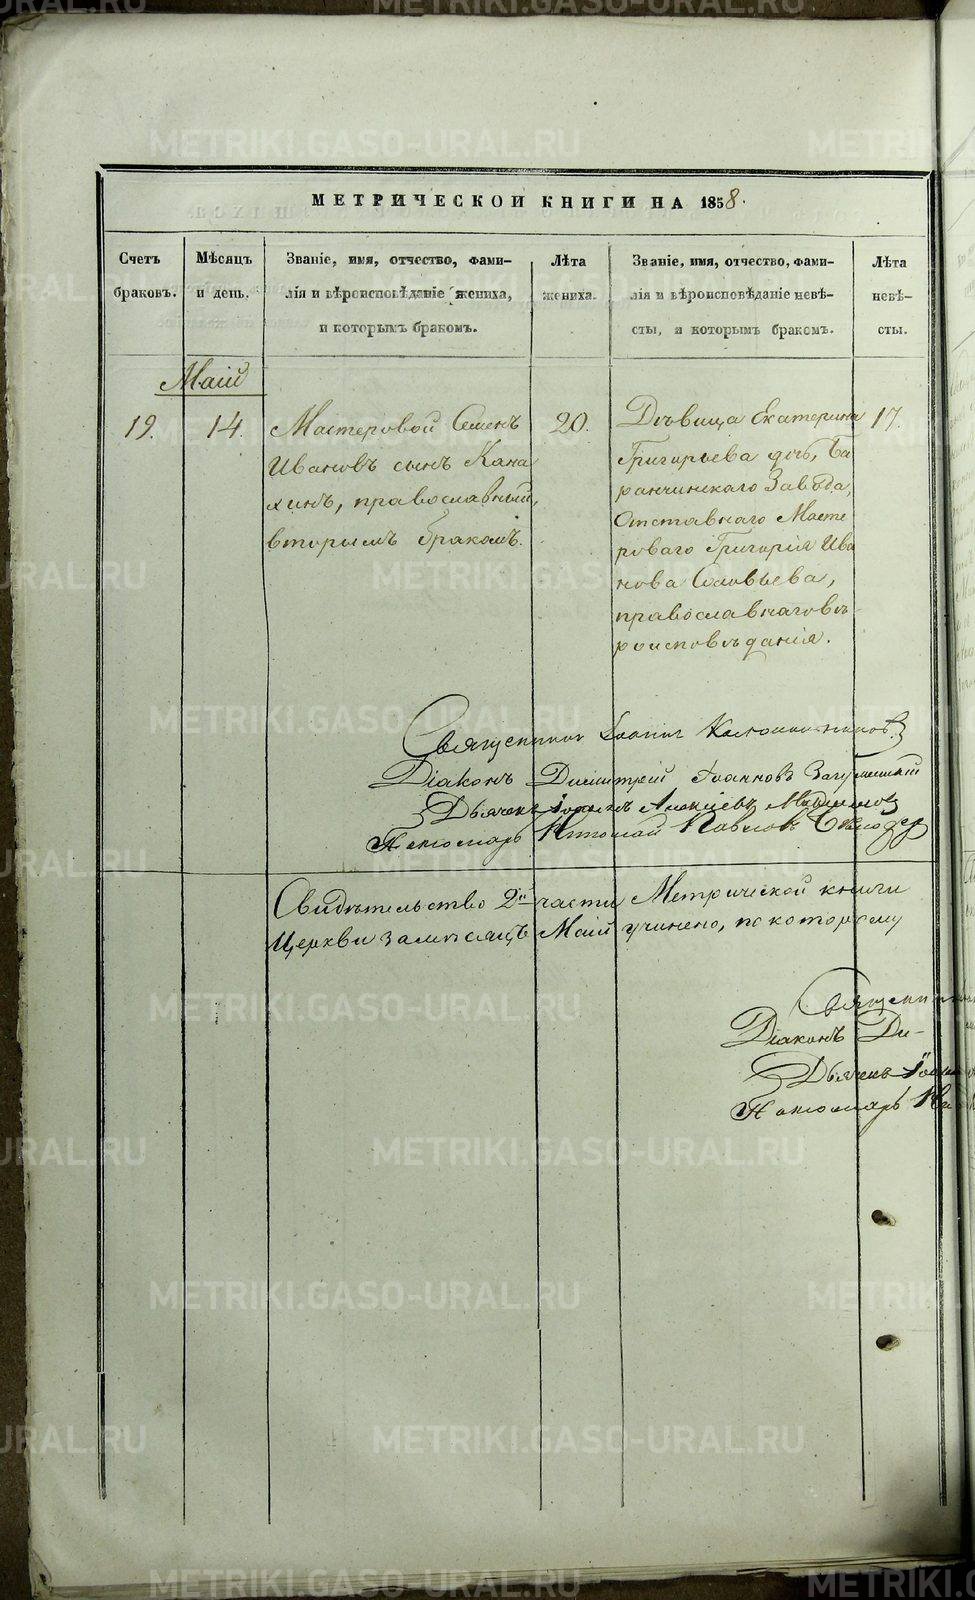 МЕТРИЧЕСКОЙ КНИГИ НА 1858.
Счетъ браковъ.
Мѣсяцъ и день.
Званіе, имя, отчество, фами-
лія и вѣроисповѣданіе жениха,
и которымъ бракомъ.
Лѣта жениха.
Званіе, имя, отчество, фами-
лія и вѣроисповѣданіе невѣ-
сты, и которымъ бракомъ.
Лѣта невѣ-
сты.
Маій
19.
14.
Мастеровой Семенъ
Ивановъ сынъ Кана
хинъ, православный,
вторымъ бракомъ.
20.
Дѣвица Екатерина
Григорьева дчь, Ба
ранчинскаго Завода,
Отставнаго Масте
роваго Григорія Ива
нова Соловьева,
православнаго вѣ
роисповѣданія.
17.
Священникъ Іоаннъ
Діаконъ Димитрій Іоанновъ
Дьячекъ Алексѣевъ
Пономарь Николай Павловъ
Свидѣтельство 2й части Метрической книги
Церкви за мѣсяцъ Маій учинено, по которому
Священни
Діаконъ Ди-
Дьячекъ
Пономарь Ни
METRIKI.GASO-URAL.RU